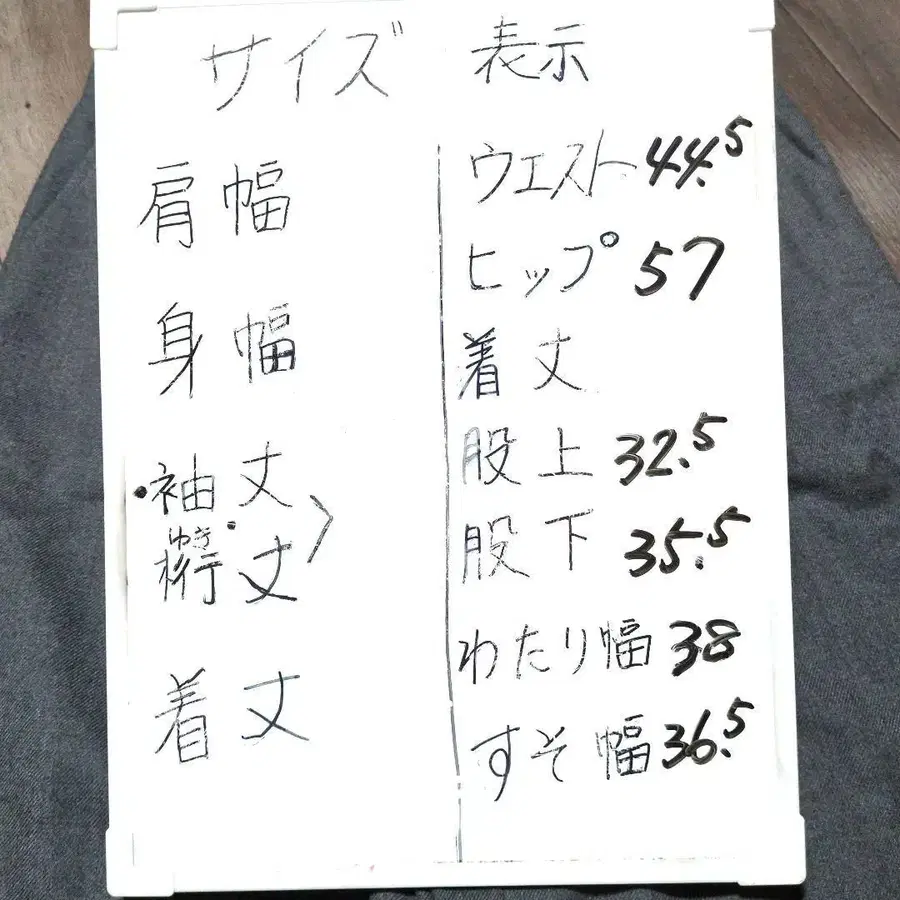 サイズ 表示
肩幅
身幅
・袖丈
ゆき・
裄丈 〉
着丈
ウエスト 44.5
ヒップ 57
着丈
股上 32.5
股下 35.5
わたり幅 38
すそ幅 36.5